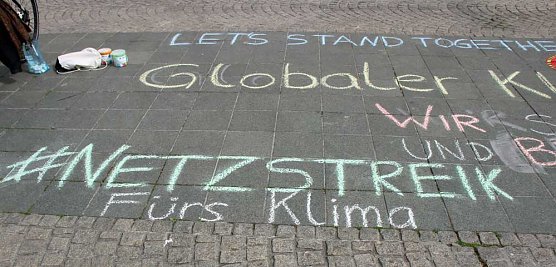 LET'S STAND TOGETHER
Globaler
WIR
UND
#NETZSTREIK
Fürs Klima